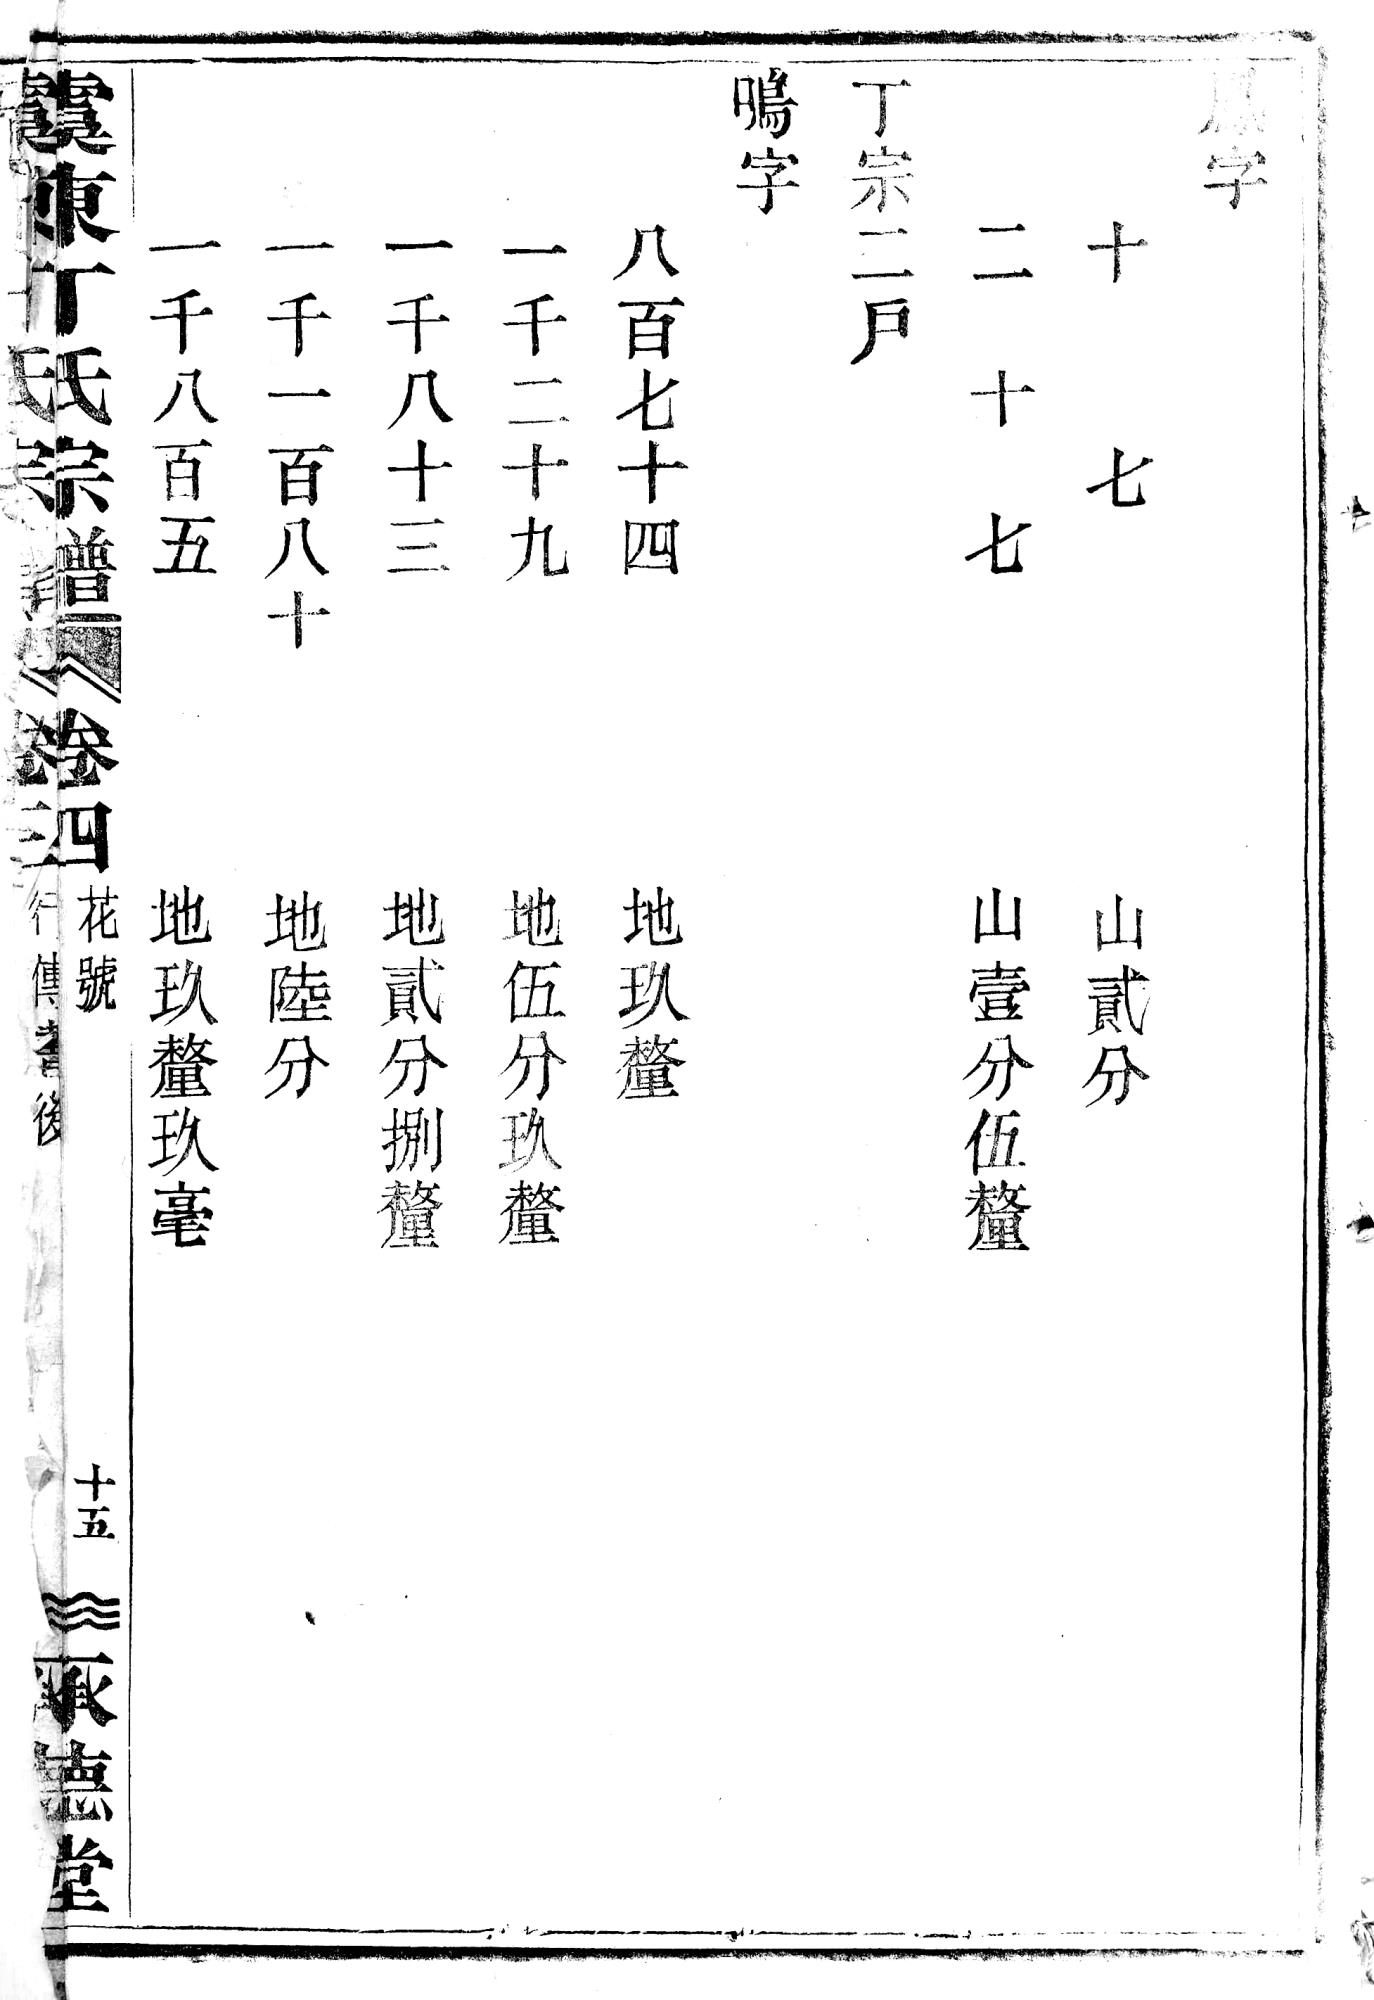 鳳字
十七　山貳分
二十七　山壹分伍釐
丁宗二戶
鳴字
八百七十四　地玖釐
一千二十九　地伍分玖釐
一千八十三　地貳分捌釐
一千一百八十　地陸分
一千八百五　地玖釐玖毫
虞東丁氏宗譜　卷四　花號　十五　承德堂